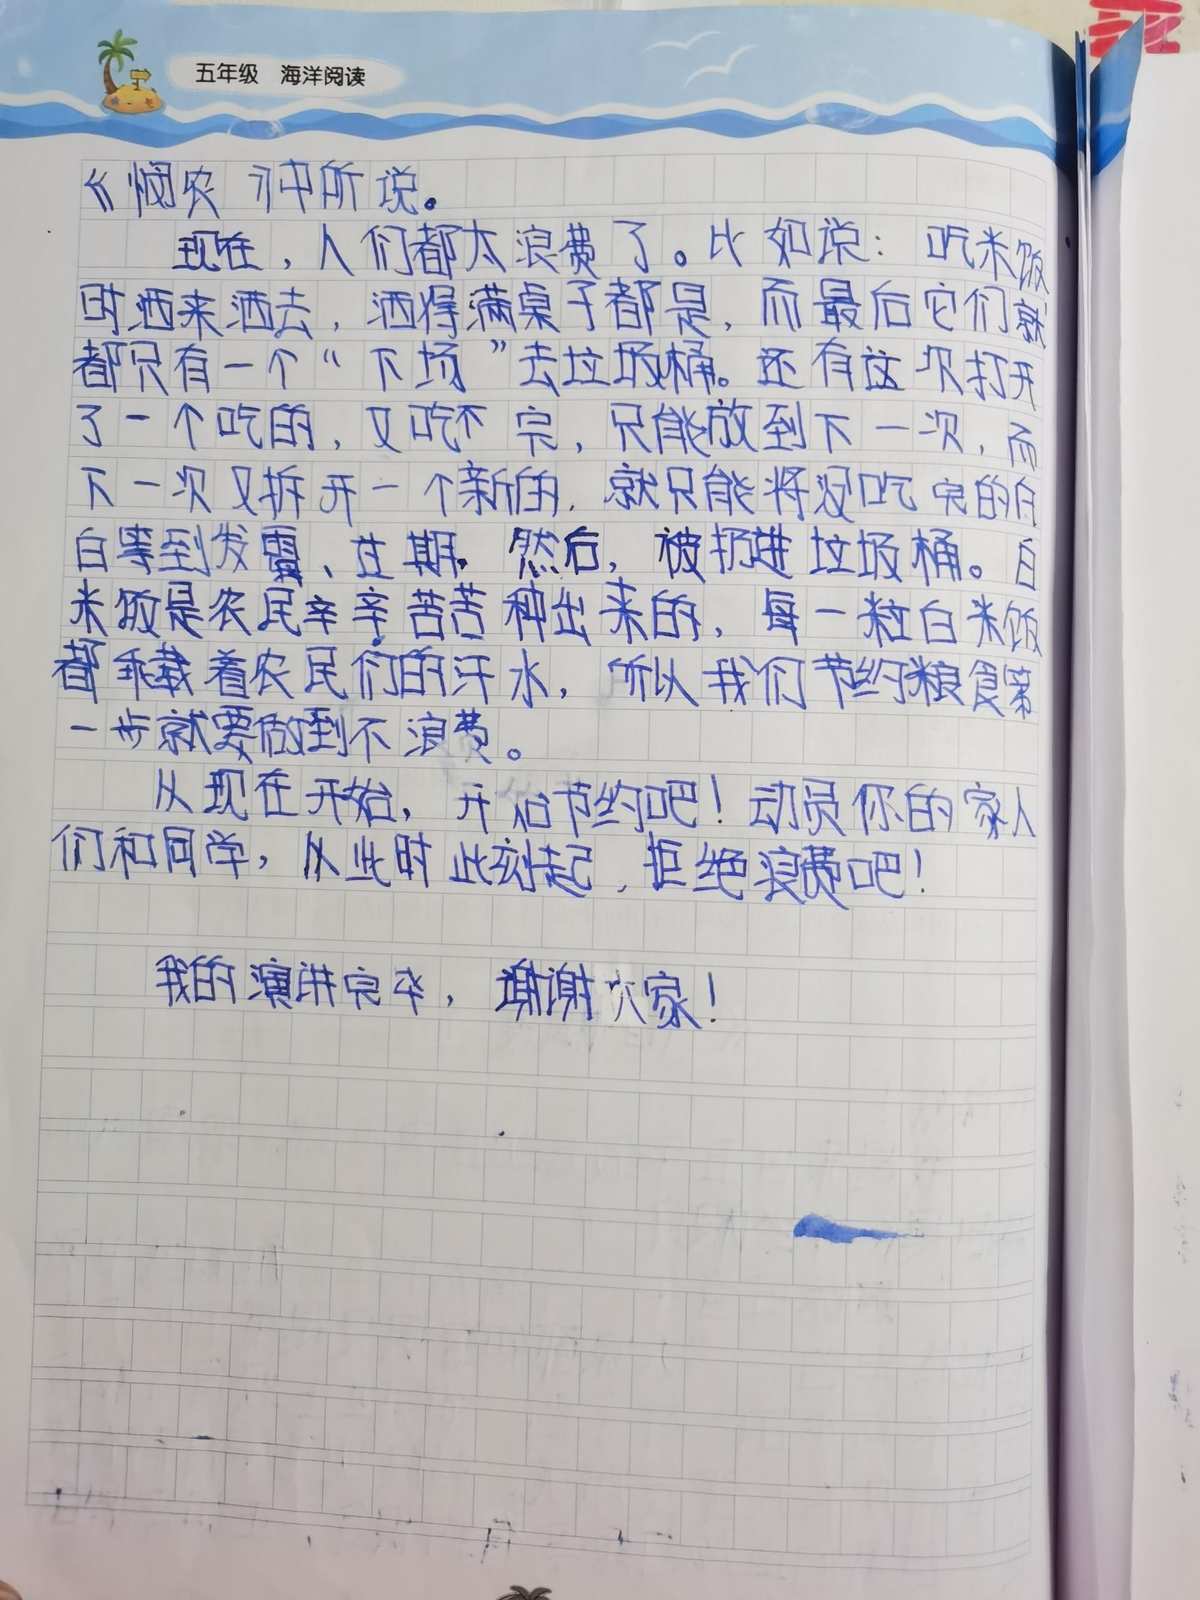 五年级 海洋阅读
《悯农》中所说。
现在，人们都太浪费了。比如说：吃米饭
时洒来洒去，洒得满桌子都是，而最后它们就
都只有一个“下场”去垃圾桶。还有这次打开
了一个吃的，又吃不完，只能放到下一次，而
下一次又拆开一个新的，就只能将没吃完的白
白等到发霉、过期。然后，被扔进垃圾桶。白
米饭是农民辛辛苦苦种出来的，每一粒白米饭
都乘载着农民们的汗水，所以我们节约粮食第
一步就要做到不浪费。
从现在开始，开始节约吧！动员你的家人
们和同学，从此时此刻起，拒绝浪费吧！
我的演讲完毕，谢谢大家！